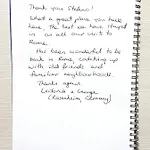 Thank you Stefano!
What a great place you have
here. The best we have stayed
in on all our visits to
Rome.
Has been wonderful to be
back in Rome catching up
with old friends and
familiar neighbourhoods.
Thanks again
& George
(Rosenheim, Germany)